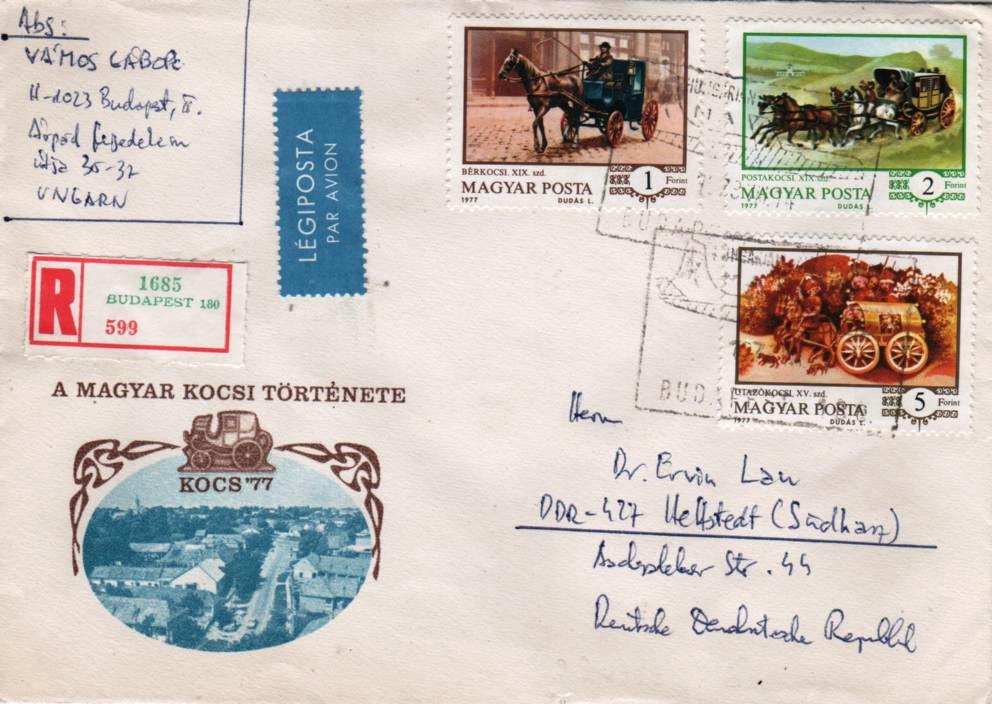 Abs:
VÁMOS GÁBOR
H-1023 Budapest, II.
Árpád fejedelem
útja 35-37
UNGARN
LÉGIPOSTA
PAR AVION
BÉRKOCSI. XIX. szd.
MAGYAR POSTA
1 Forint
1977 DUDÁS L.
POSTAKOCSI. XIX. szd.
MAGYAR POSTA
2 Forint
1977 DUDÁS L.
UTAZÓKOCSI. XV. szd.
MAGYAR POSTA
5 Forint
1977 DUDÁS L.
HUNGARIAN
R
1685
BUDAPEST 180
599
A MAGYAR KOCSI TÖRTÉNETE
KOCS '77
Herrn
Dr. Ervin Lau
DDR-427 Hettstedt (Südharz)
Str. 44
Deutsche Demokratische Republik